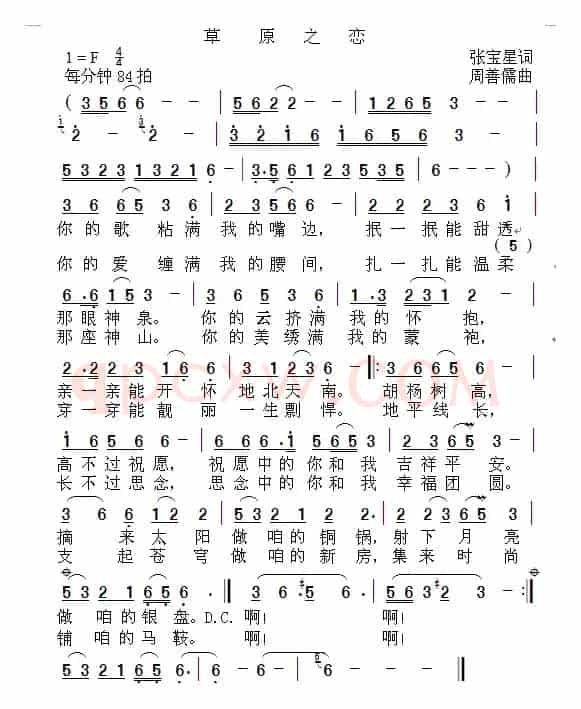 草 原 之 恋
1 = F 4/4 张宝星词
每分钟 84 拍 周善儒曲
( 3 5 6 6 - - | 5 6 2 2 - - | 1 2 6 5 3 - - |
2 - 2 - | 3 2 1 6 1 6 5 6 | 3 - - - |
5 3 2 3 1 3 2 1 6 - | 3 . 5 6 1 2 3 5 3 5 | 6 - - - )
3 6 6 5 3 6 | 2 3 5 6 6 - | 2 3 5 6 2 i |
你 的 歌 粘 满 我 的 嘴 边， 抿 一 抿 能 甜 透
( 5 )
你 的 爱 缠 满 我 的 腰 间， 扎 一 扎 能 温 柔
6 . 6 1 5 3 - | 3 6 6 5 3 6 | 1 . 3 2 3 1 3 - |
那 眼 神 泉。 你 的 云 挤 满 我 的 怀 抱，
那 座 神 山。 你 的 美 绣 满 我 的 蒙 袍，
2 . 2 2 3 1 6 6 - | 2 . 2 1 2 6 - - |: 3 6 6 5 6 - |
亲 一 亲 能 开 怀 地 北 天 南。 胡 杨 树 高，
穿 一 穿 能 靓 丽 一 生 剽 悍。 地 平 线 长，
1 6 5 6 6 - | 6 5 6 6 . 1 | 2 3 6 5 3 - |
高 不 过 祝 愿， 祝 愿 中 的 你 和 我 吉 祥 平 安。
长 不 过 思 念， 思 念 中 的 你 和 我 幸 福 团 圆。
3 6 6 1 2 | 3 2 1 6 1 2 2 . | 3 6 2 3 6 5 |
摘 来 太 阳 做 咱 的 铜 锅， 射 下 月 亮
支 起 苍 穹 做 咱 的 新 房， 集 来 时 尚
5 3 2 1 6 5 6 . :| 3 6 . 5 3 | 6 5 6 3 2 3 :|
做 咱 的 银 盘。D.C. 啊！ 啊！
铺 咱 的 马 鞍。 啊！ 啊！
5 3 2 1 6 5 6 . | 6 - - - | 6 - - - ||